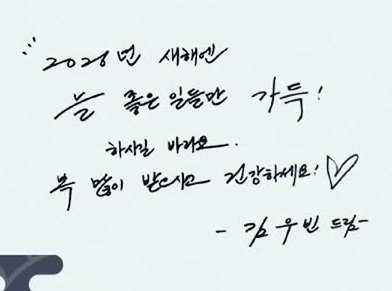 2026년 새해엔
늘 좋은 일들만 가득!
하시길 바라요.
복 많이 받으시고 건강하세요! ♡
- 김우빈 드림-